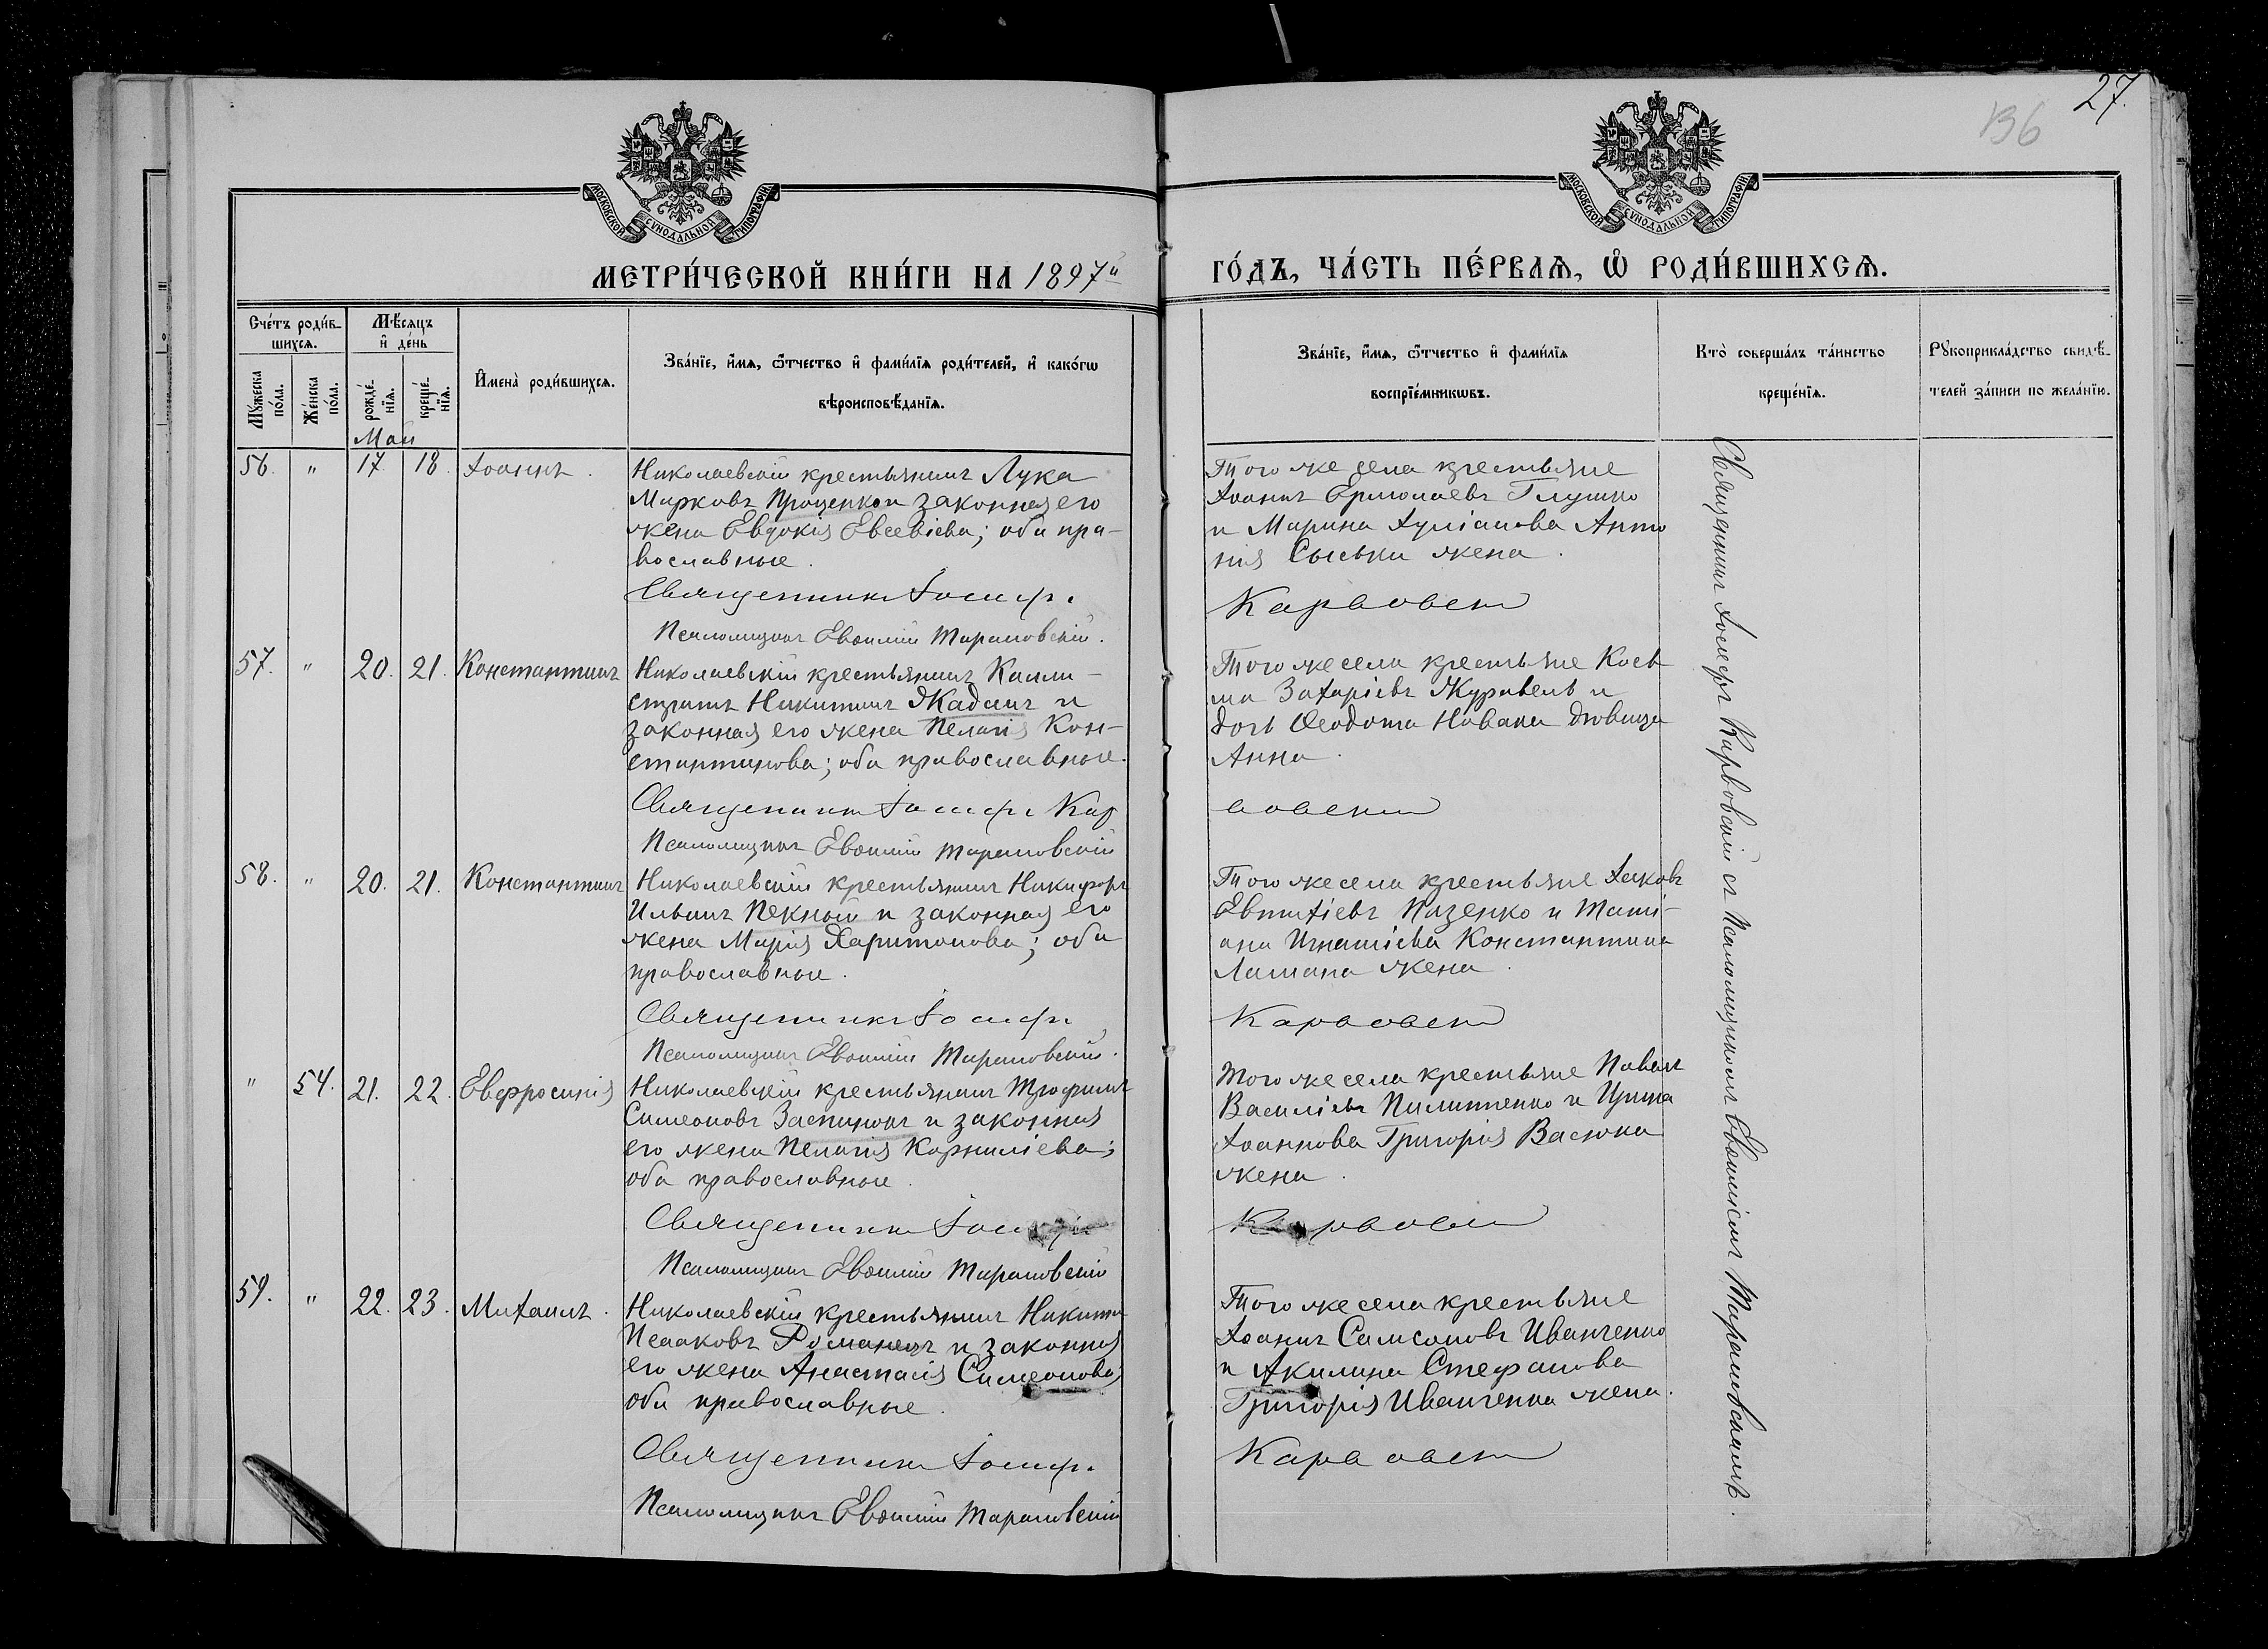 27.
136
МОСКОВСКОЙ СѴНОДАЛЬНОЙ ТИПОГРАФІИ
МОСКОВСКОЙ СѴНОДАЛЬНОЙ ТИПОГРАФІИ
МЕТРИ́ЧЕСКОЙ КНИ́ГИ НА 1897й
ГО́ДЪ, ЧА́СТЬ ПЕ́РВАѦ, Ѡ҆ РОДИ́ВШИХСѦ.
Сче́тъ роди́в-
шихсѧ.
Мѣ́сѧцъ
и҆ де́нь
Мꙋ́жеска
по́ла.
Же́нска
по́ла.
рожде́-
нїѧ.
креще́-
нїѧ.
И҆мена̀ роди́вшихсѧ.
Зва́нїе, и҆́мѧ, ѻ҆́тчество и҆ фами́лїѧ роди́телей, и҆ како́гѡ
вѣроисповѣ́данїѧ.
Зва́нїе, и҆́мѧ, ѻ҆́тчество и҆ фами́лїѧ
воспрїе́мникѡвъ.
Кто̀ соверша́лъ та́инство
креще́нїѧ.
Рꙋкоприкла́дство свидѣ́-
телей за́писи по жела́нїю.
Май
56. " 17. 18. Іоаннъ.
Николаевскій крестьянинъ Лука
Марковъ Проценко и законная его
жена Евдокія Евсевіева; оба пра-
вославные.
Священникъ Іосифъ
Псаломщикъ Евѳимій Тарановскій.
Того же села крестьяне
Іоаннъ Ермолаевъ Глушко
и Марина Іуліанова Анто
нія Сыська жена.
Карвовскій
57. " 20. 21. Константинъ
Николаевскій крестьянинъ Калли-
стратъ Никитинъ Жаданъ и
законная его жена Пелагія Кон-
стантинова; оба православные.
Священникъ Іосифъ Кар
Псаломщикъ Евѳимій Тарановскій
Того же села крестьяне Кось-
ма Захаріевъ Журавель и
дочь Ѳеодота Новака дѣвица
Анна.
вовскій
58. " 20. 21. Константинъ
Николаевскій крестьянинъ Никифоръ
Ильинъ Пекной и законная его
жена Марія Харитонова; оба
православные.
Священникъ Іосифъ
Псаломщикъ Евѳимій Тарановскій.
Того же села крестьяне Іаковъ
Евтихіевъ Пазенко и Таті-
ана Игнатіева Константина
жена.
Карвовскій
" 54. 21. 22. Евфросинія
Николаевскій крестьянинъ Трофимъ
Симеоновъ и законная
его жена Пелагія Корниліева;
оба православные.
Священникъ Іосифъ
Псаломщикъ Евѳимій Тарановскій
Того же села крестьяне Павелъ
Василіевъ Пилипенко и Ирина
Іоаннова Григорія Васюка
жена.
Карвовскій
59. " 22. 23. Михаилъ.
Николаевскій крестьянинъ Никита
Исааковъ Романецъ и законная
его жена Анастасія Симеонова;
оба православные.
Священникъ Іосифъ
Псаломщикъ Евѳимій Тарановскій
Того же села крестьяне
Іоаннъ Самсоновъ Иванченко
и Акилина Стефанова
Григорія Иванченка жена.
Карвовскій
Священникъ Іосифъ Карвовскій съ псаломщикомъ Евѳиміемъ Тарановскимъ.